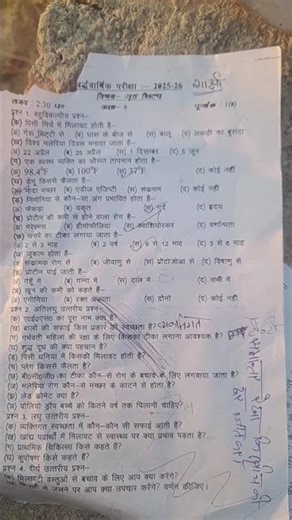 अर्द्धवार्षिक परीक्षा :- 2025-26
विषय- गृह शिल्प
समय : 2:30 कक्षा - 8 पूर्णांक : 100
प्रश्न 1. बहुविकल्पीय प्रश्न-
(क) पिसी मिर्च में मिलावट होती है-
(अ) गेरू मिट्टी से (ब) घास के बीज से (स) बालू (द) लकड़ी का बुरादा
(ख) विश्व मलेरिया दिवस मनाया जाता है-
(अ) 22 अप्रैल (ब) 25 अप्रैल (स) 1 दिसम्बर (द) 5 जून
(ग) एक स्वस्थ व्यक्ति का औसत तापमान होता है-
(अ) 98.4°F (ब) 100°F (स) 37°F (द) कोई नहीं
(घ) डेंगू किससे फैलता है-
(अ) मादा मच्छर (ब) एडीज एजिप्टी (स) संक्रमण (द) कोई नहीं
(ङ) निमोनिया में कौन-सा अंग प्रभावित होता है-
(अ) फेफड़ा (ब) यकृत (स) गुर्दे (द) हृदय
(च) प्रोटीन की कमी से होने वाला रोग है-
(अ) मरेस्मस (ब) हीमोफीलिया (स) क्वाशियोरकर (द) वर्णान्धता
(छ) खसरे का टीका लगाया जाता है-
(अ) 2 से 3 माह (ब) 2 वर्ष (स) 9 से 12 माह (द) 3 से 8 माह
(ज) जुकाम होता है-
(अ) संक्रामक रोग से (ब) जीवाणु से (स) प्रोटोजोआ से (द) विषाणु से
(झ) प्रोटीन पाई जाती है-
(अ) गेहूँ में (ब) गन्ना में (स) दाल में (द) सभी में
(ञ) खून की कमी को कहते है-
(अ) एनीमिया (ब) रक्त (स) दोनों (द) कोई नहीं
प्रश्न 2. अतिलघु उत्तरीय प्रश्न-
(क) का पूरा नाम क्या है?
(ख) बालों की सफाई किस प्रकार की स्वच्छता है? व्यक्तिगत
(ग) गर्भवती महिला की रक्षा के लिए किसका टीका लगाना आवश्यक है?
(घ) शुद्ध दूध की क्या पहचान है?
(ङ) पिसी धनिया में किसकी मिलावट होती है?
(च) प्लेग किससे फैलता है?
(छ) बी०सी०जी० का टीका कौन-से रोग के बचाव के लिए लगवाया जाता है?
(ज) मलेरिया रोग कौन-से मच्छर के काटने से होता है?
(झ) लेड क्रोमेट क्या है?
(ञ) पोलियो ड्रॉप बच्चे को कितने वर्ष तक पिलानी चाहिए?
प्रश्न 3. लघु उत्तरीय प्रश्न-
(क) व्यक्तिगत स्वच्छता में कौन-कौन सी सफाई आती है?
(ख) खाद्य पदार्थों में मिलावट से स्वास्थ्य पर क्या प्रभाव पड़ता है?
(ग) प्राथमिक चिकित्सा किसे कहते हैं?
(घ) कुपोषण किसे कहते हैं?
प्रश्न 4. दीर्घ उत्तरीय प्रश्न-
(क) मिलावटी वस्तुओं से बचाव के लिए आप क्या करेंगे?
से जलने पर आप क्या उपचार करेंगे? वर्णन कीजिए।